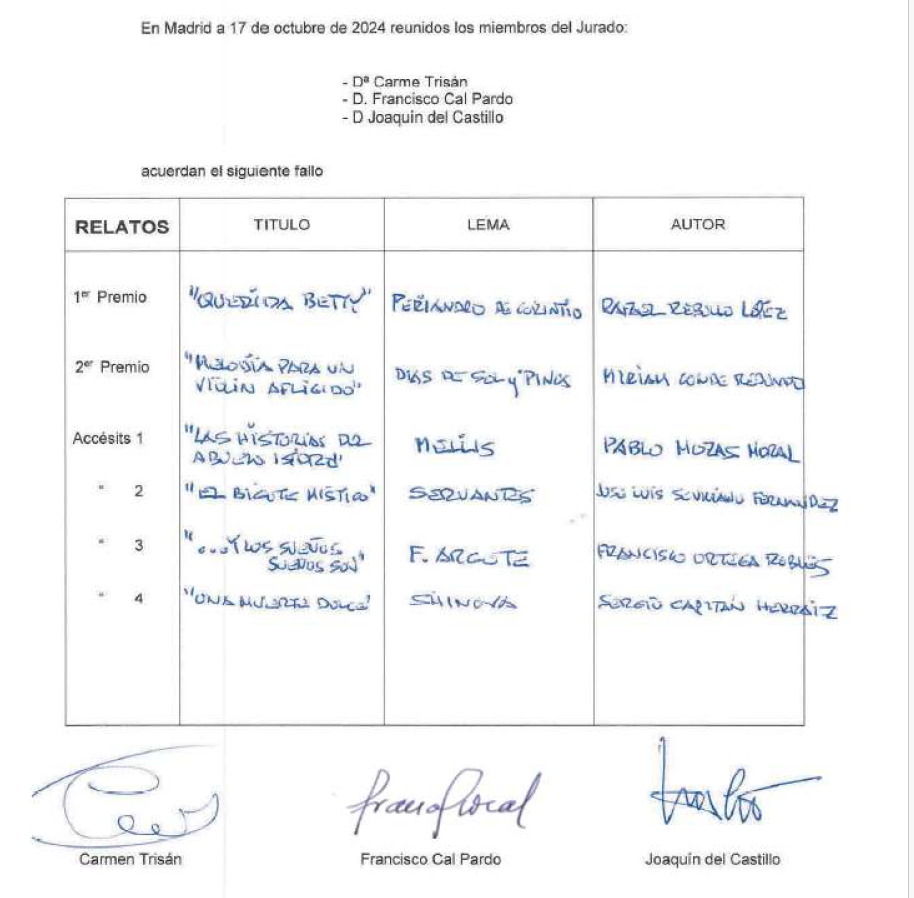 En Madrid a 17 de octubre de 2024 reunidos los miembros del Jurado:
- Dª Carme Trisán
- D. Francisco Cal Pardo
- D Joaquín del Castillo
acuerdan el siguiente fallo
RELATOS TITULO LEMA AUTOR
1er Premio "QUERIDA BETTY" PERIANDRO DE CORINTIO RAFAEL REBOLLO LÓPEZ
2er Premio "MELODÍA PARA UN DIAS DE SOL Y PINOS MIRIAM CONDE REDONDO
VIOLIN AFLIGIDO"
Accésits 1 "LAS HISTORIAS DEL PABLO MOZAS MORAL
ABUELO ISIDRO"
" 2 "EL BIGOTE MISTICO" SERVANTES JOSE LUIS SEVILLANO FERNANDEZ
" 3 "...Y LOS SUEÑOS F. ARGOTE FRANCISCO ORTEGA ROBLES
SUEÑOS SON"
" 4 "UNA MUERTE DULCE" SHINOVA SERGIO CAPITÁN HERRAIZ
Carmen Trisán Francisco Cal Pardo Joaquín del Castillo